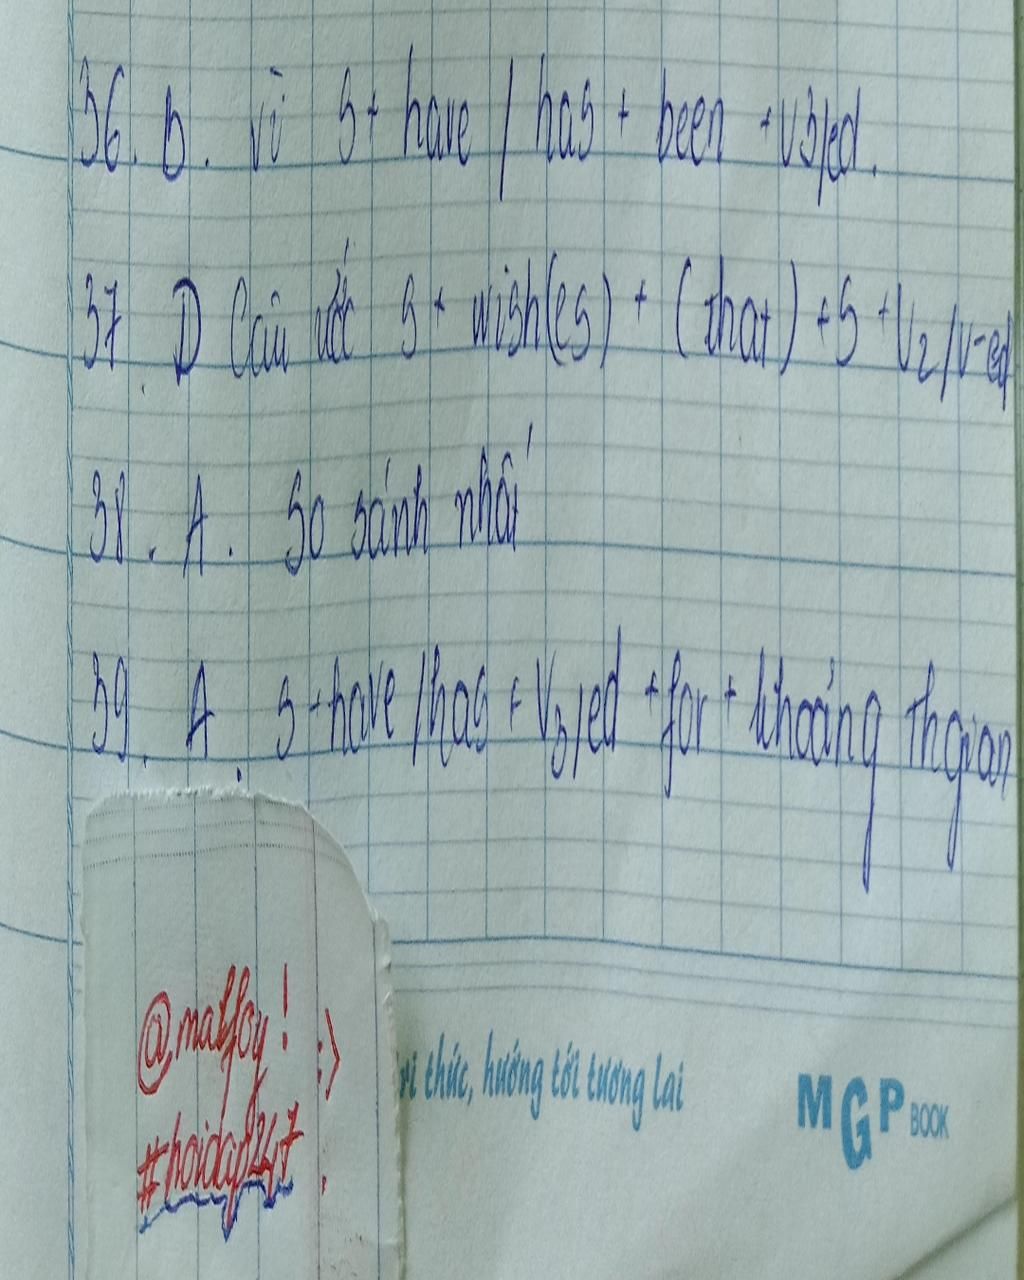 36. D. Vì S + have / has + been + V3/ed.
37. D Câu ước S + wish(es) + (that) + S + V2/V-ed
38. A. So sánh nhất
39. A. S + have /has + V3/ed + for + khoảng thgian
@malfoy! :)
#hoidap247.
tri thức, hướng tới tương lai
MGP BOOK